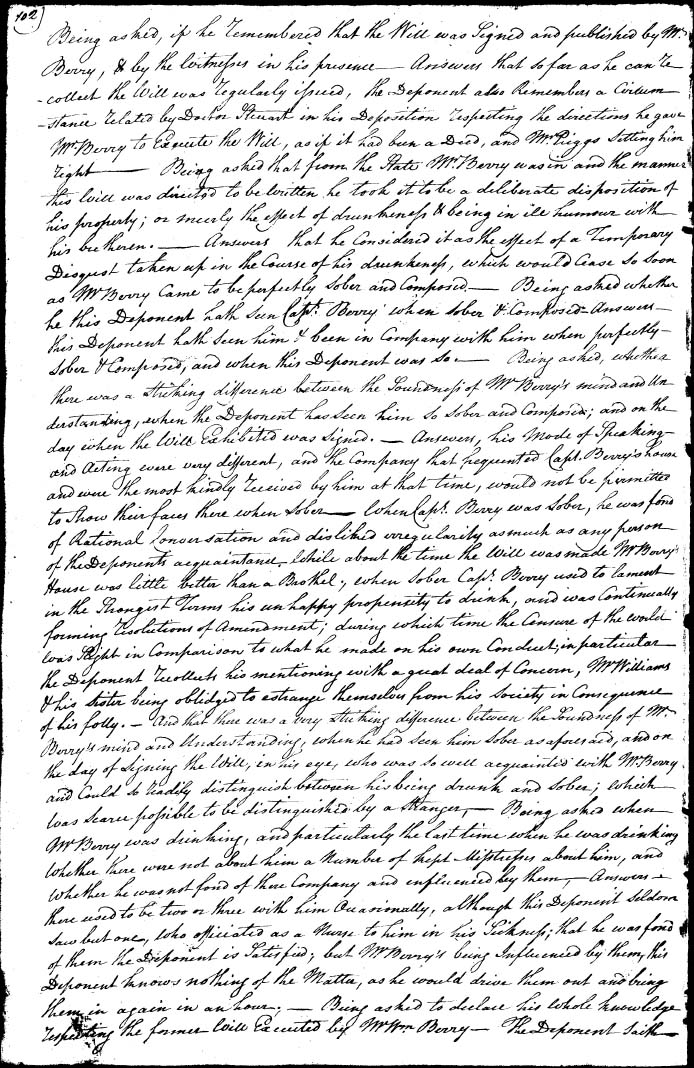 102
Being asked, if he remembered that the Will was Signed and published by Mr.
Berry, & by the Witnesses in his presence — Answers that so far as he can re
-collect the Will was regularly issued, the Deponent also Remembers a Circum
-stance related by Doctor Steuart in his Deposition respecting the directions he gave
Mr Berry to Execute the Will, as if it had been a Deed, and Mr Riggs Setting him
right — Being asked that from the State Mr Berry was in and the manner
this Will was directed to be written he took it to be a deliberate disposition of
his property; or meerly the effect of drunkeness & being in ill humour with
his bretheren. — Answers that he Considered it as the effect of a Temporary
Disgust taken up in the Course of his drunkeness, which would Cease so soon
as Mr Berry Came to be perfectly Sober and Composed. — Being asked whether
he this Deponent hath Seen Capt. Berry when sober & Composed — Answers —
this Deponent hath Seen him & been in Company with him when perfectly
Sober & Composed, and when this Deponent was so. — Being asked, whether
there was a striking difference between the Soundness of Mr Berry's mind and Un
derstanding, when the Deponent has seen him so Sober and Composed; and on the
day when the Will Exhibited was Signed. — Answers, his Mode of Speaking
and Acting were very different, and the Company that frequented Capt. Berry's house
and were the most kindly received by him at that time, would not be permitted
to Show their faces there when Sober — When Capt. Berry was Sober, he was fond
of Rational Conversation and disliked irregularity as much as any person
of the Deponents acquaintance, While about the time the Will was made Mr Berry's
House was little better than a Brothel; when Sober Capt. Berry used to lament
in the Strongest Terms his unhappy propensity to drink, and was Continually
forming resolutions of Amendment; during which time the Censure of the world
was Slight in Comparison to what he made on his own Conduct; in particular
the Deponent recollects his mentioning with a great deal of Concern, Mr Williams
& his Sister being oblidged to estrange themselves from his Society in Consequence
of his folly. — And that there was a very striking difference between the Soundness of Mr.
Berry's mind and Understanding, when he had seen him Sober as aforesaid, and on
the day of Signing the Will, in his eye, who was so well acquainted with Mr Berry
and Could so readily distinguish between his being drunk and Sober; which
was scarce possible to be distinguished by a Stranger, — Being asked when
Mr Berry was drinking, and particularly the last time when he was drinking
whether there were not about him a Number of kept Mistresses about him, and
whether he was not fond of there Company and influenced by them, — Answers —
there used to be two or three with him Occasionally, although this Deponent Seldom
saw but one, who officiated as a Nurse to him in his Sickness; that he was fond
of them the Deponent is Satisfied; but Mr Berry's being Influenced by them, this
Deponent knows nothing of the Matter, as he would drive them out and bring
them in again in an hour; — Being asked to declare his whole knowledge
respecting the former Will Executed by Mr Wm Berry — The Deponent Saith —